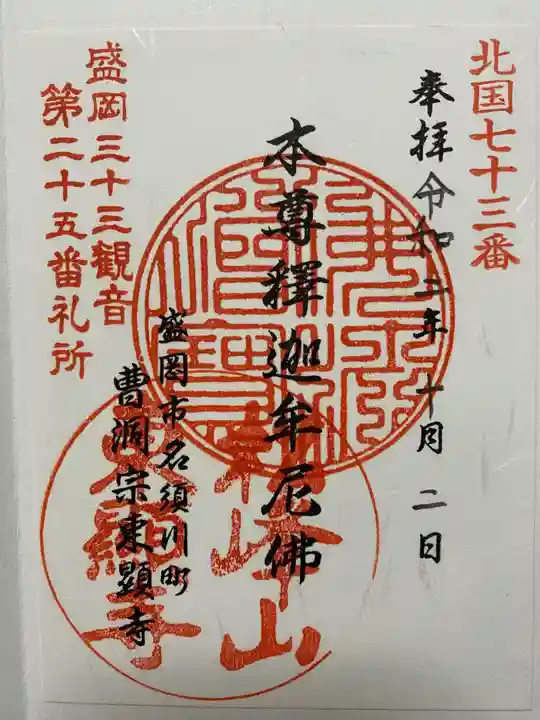 北国七十三番
奉拝 令和二年 十月 二日
本尊釋迦牟尼佛
盛岡市名須川町
曹洞宗東顯寺
盛岡三十三観音
第二十五番礼所
峰山
東顕寺